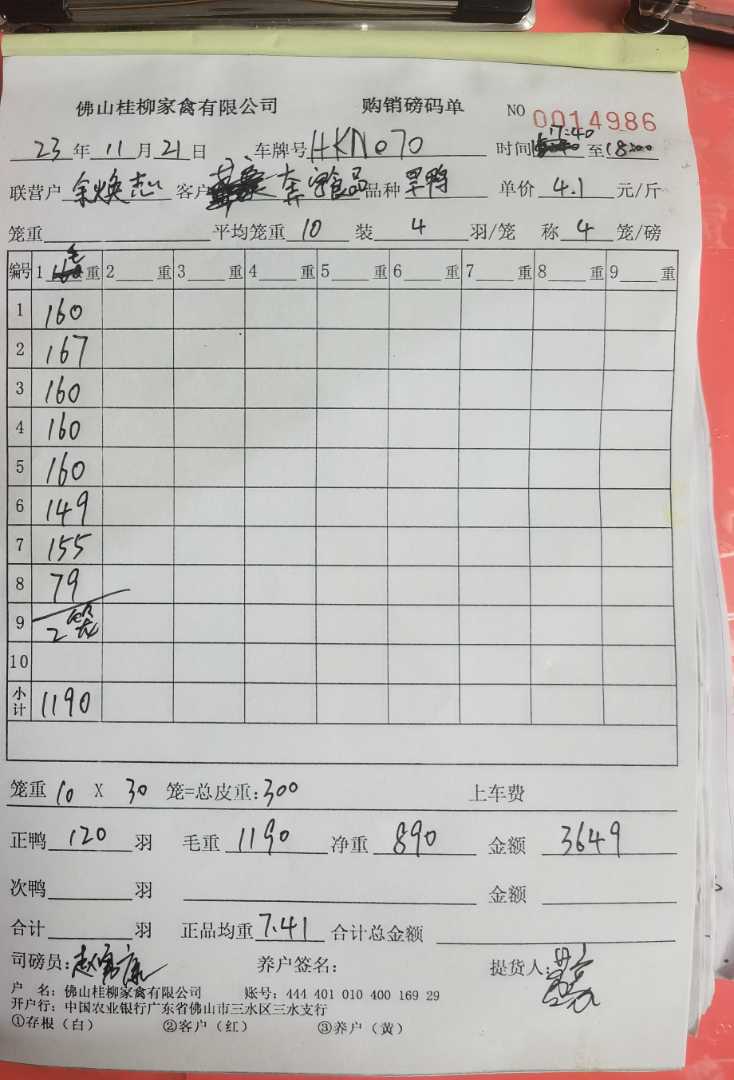 佛山桂柳家禽有限公司 购销磅码单 NO 0014986
23年11月21日 车牌号HKN070 时间17:40至18:00
联营户余焕志 客户食品 品种旱鸭 单价4.1元/斤
笼重 平均笼重10 装4羽/笼 称4笼/磅
编号 1毛重 2重 3重 4重 5重 6重 7重 8重 9重
1 160
2 167
3 160
4 160
5 160
6 149
7 155
8 79
9 2笼
10
小计 1190
笼重10 X 30笼=总皮重:300 上车费
正鸭120羽 毛重1190 净重890 金额3649
次鸭羽 金额
合计羽 正品均重7.41 合计总金额
司磅员: 养户签名: 提货人:
户 名:佛山桂柳家禽有限公司 账号:444 401 010 400 169 29
开户行:中国农业银行广东省佛山市三水区三水支行
①存根(白) ②客户(红) ③养户(黄)